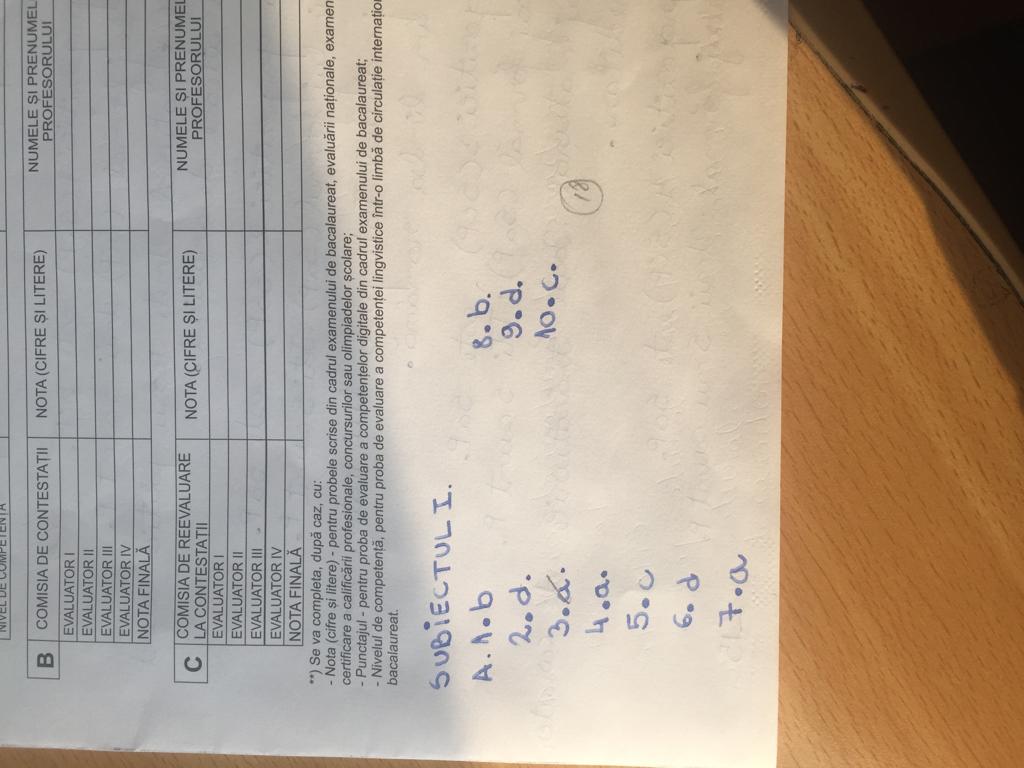 NIVEL DE COMPETENȚĂ
B COMISIA DE CONTESTAȚII NOTA (CIFRE ȘI LITERE) NUMELE ȘI PRENUMEL
PROFESORULUI
EVALUATOR I
EVALUATOR II
EVALUATOR III
EVALUATOR IV
NOTA FINALĂ
C COMISIA DE REEVALUARE LA CONTESTAȚII NOTA (CIFRE ȘI LITERE) NUMELE ȘI PRENUMEL
PROFESORULUI
EVALUATOR I
EVALUATOR II
EVALUATOR III
EVALUATOR IV
NOTA FINALĂ
**) Se va completa, după caz, cu:
- Nota (cifre și litere) - pentru probele scrise din cadrul examenului de bacalaureat, evaluării naționale, examen
certificare a calificării profesionale, concursurilor sau olimpiadelor școlare;
- Punctajul - pentru proba de evaluare a competențelor digitale din cadrul examenului de bacalaureat;
- Nivelul de competență, pentru proba de evaluare a competenței lingvistice într-o limbă de circulație internațio
bacalaureat.
SUBIECTUL I.
A. 1. b 8. b.
2. d. 9. d.
3. a. 10. c.
4. a. 18
5. c
6. d
7. a